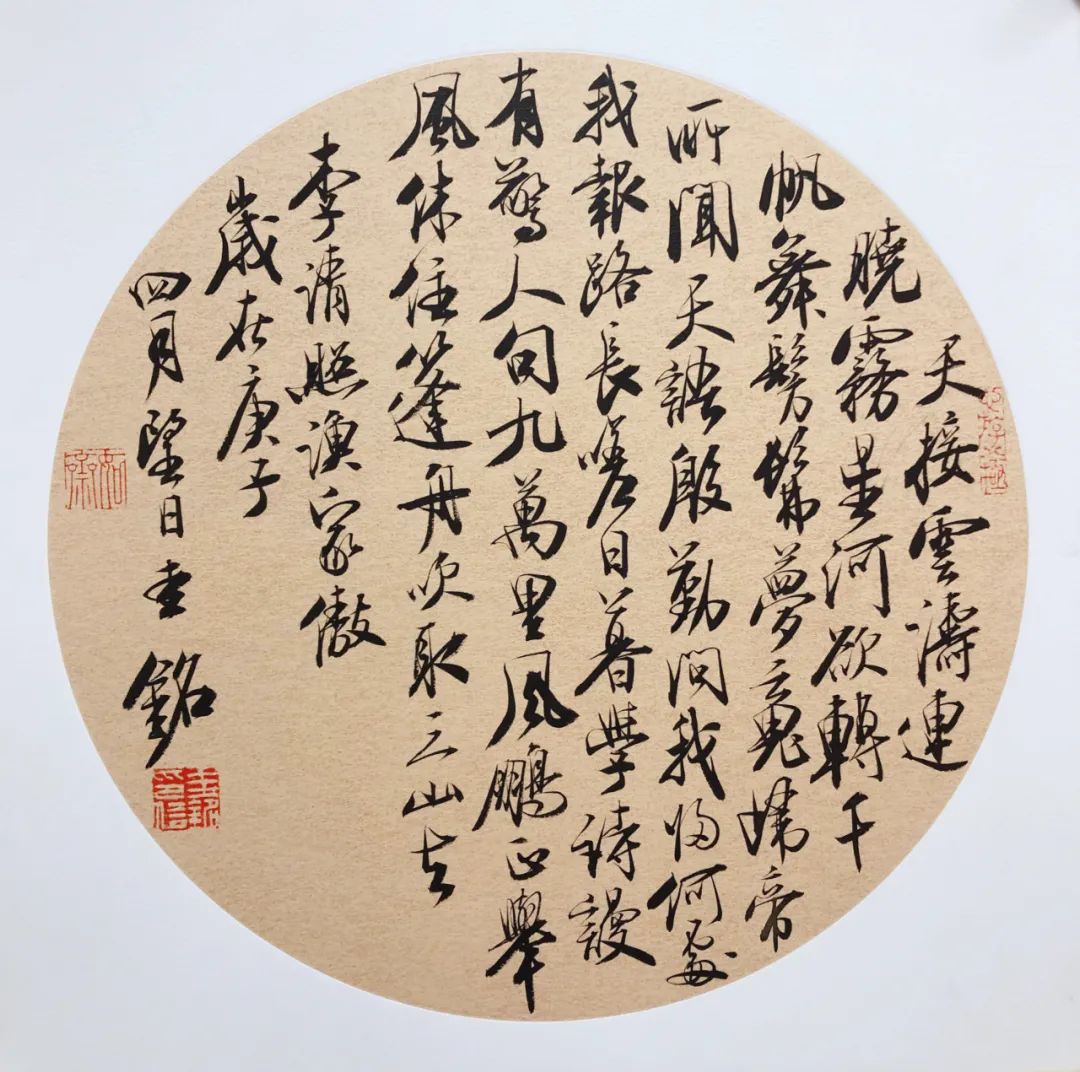 天接雲濤連
曉霧星河欲轉千
帆舞髣髴夢魂歸帝
所聞天語殷勤問我歸何處
我報路長嗟日暮學詩謾
有驚人句九萬里風鵬正舉
風休住篷舟吹取三山去
李清照漁家傲
歲在庚子
四月望日銘